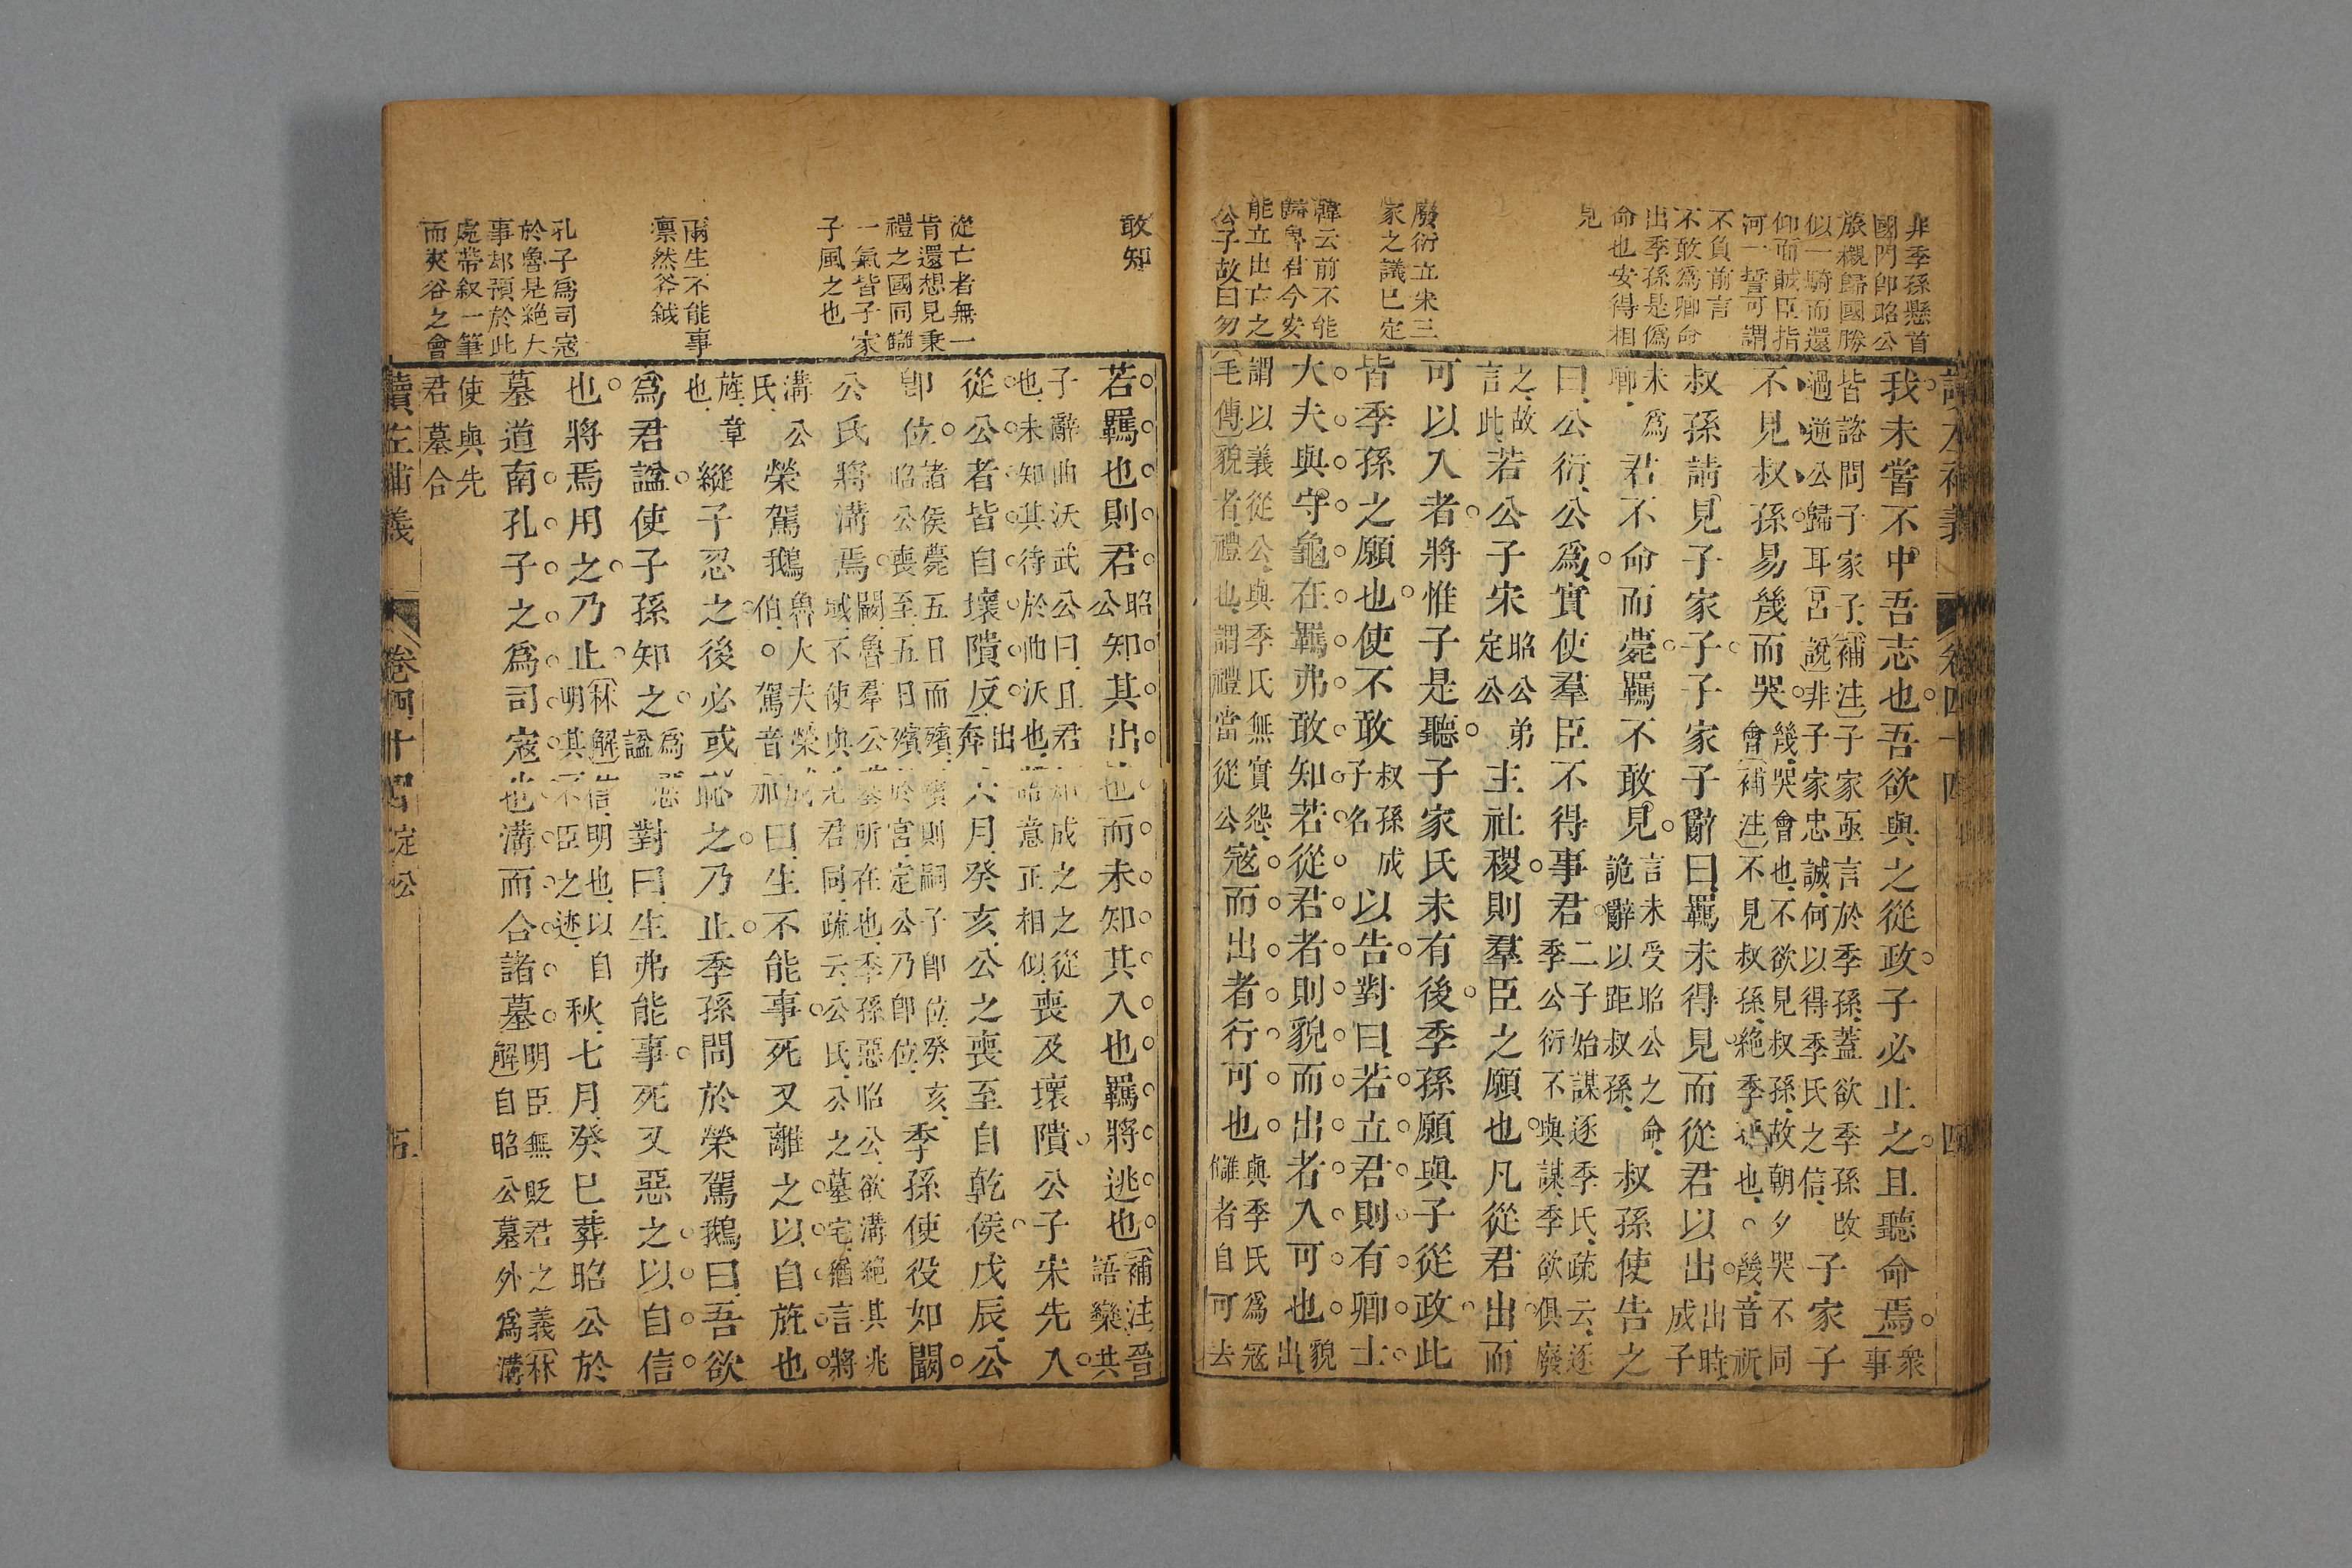 非季孫懸首
國門卽昭公
旅櫬歸國勝
似一騎而還
仰而賊臣指
河一誓可謂
不負前言
不敢爲卿命
出季孫是僞
命也安得相
見
廢衍立宋三
家之議已定
歸魯君今安
能立出亡之
公子故曰勿
我未嘗不中吾志也吾欲與之從政子必止之且聽命焉衆
事
皆諮問子家子補注子家亟言於季孫蓋欲季孫改
過逆公歸耳宮說非子家忠誠何以得季氏之信
子家子
不見叔孫易幾而哭
幾哭會也不欲見叔孫故朝夕哭不同
會補注不見叔孫絶季也幾音祈
叔孫請見子家子子家子辭曰羈未得見而從君以出
出時
成子
未爲
卿
君不命而薨羈不敢見
言未受昭公之命
詭辭以距叔孫
叔孫使告之
曰公衍公爲實使羣臣不得事君
二子始謀逐季氏疏云逐
季公衍不與謀季欲俱廢
之故
言此
若公子宋
昭公弟
定公
主社稷則羣臣之願也凡從君出而
可以入者將惟子是聽子家氏未有後季孫願與子從政此
皆季孫之願也使不敢
叔孫成
子名
以告對曰若立君則有卿士
大夫與守龜在羈弗敢知若從君者則貌而出者入可也
貌
出
謂以義從公與季氏無實怨
毛傳貌者禮也謂禮當從公
寇而出者行可也
與季氏爲寇
讎者自可去
敢知
從亡者無一
肯還想見秉
禮之國同讎
一氣皆子家
子風之也
兩生不能事
凛然斧鉞
孔子爲司寇
於魯是絶大
事却預於此
處帶叙一筆
而夾谷之會
若羈也則君
昭
公
知其出也而未知其入也羈將逃也
補注晉
語欒共
子辭曲沃武公曰且君
也未知其待於曲沃也
成之之從
語意正相似
喪及壞隤公子宋先入
從公者皆自壞隤反
出
奔
六月癸亥公之喪至自乾侯戊辰公
卽位
諸侯薨五日而殯殯則嗣子卽位癸亥
昭公喪至五日殯於宮定公乃卽位
季孫使役如闞
公氏將溝焉
闞魯羣公墓所在也季孫惡昭公欲溝絶其兆
域不使與先君同疏云公氏公之墓宅猶言將
溝公
氏
榮駕鵝
魯大夫榮成
伯駕音加
曰生不能事死又離之以自旌也
旌章
也
縱子忍之後必或恥之乃止季孫問於榮駕鵝曰吾欲
爲君諡使子孫知之
爲惡
諡
對曰生弗能事死又惡之以自信
也將焉用之乃止
林解信明也以自
明其不臣之迹
秋七月癸巳葬昭公於
墓道南孔子之爲司寇也溝而合諸墓
明臣無貶君之義林
解自昭公墓外爲溝
使與先
君墓合
讀左補義
卷四十四
定公
五